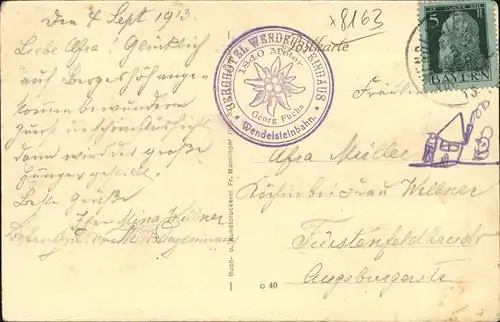 Den 4 Sept 1913.
Liebe Afra! Glücklich
auf Bergeshöh ange-
kommen bewundern
zuerst die schöne Aussicht
dann wird der große
Hunger gestillt.
Beste Grüße
Ihre Mina
x 8163
Postkarte
BERGHOTEL WENDELSTEINHAUS
1840 Meter
Georg Fuchs
Wendelsteinbahn.
5
BAYERN
Fräulein
Afra Müller
Köchin bei Frau Wellner
Fürstenfeldbruck
Augsburgerstr
Buch- u. Kunstdruckerei Fr. Manninger
C 40